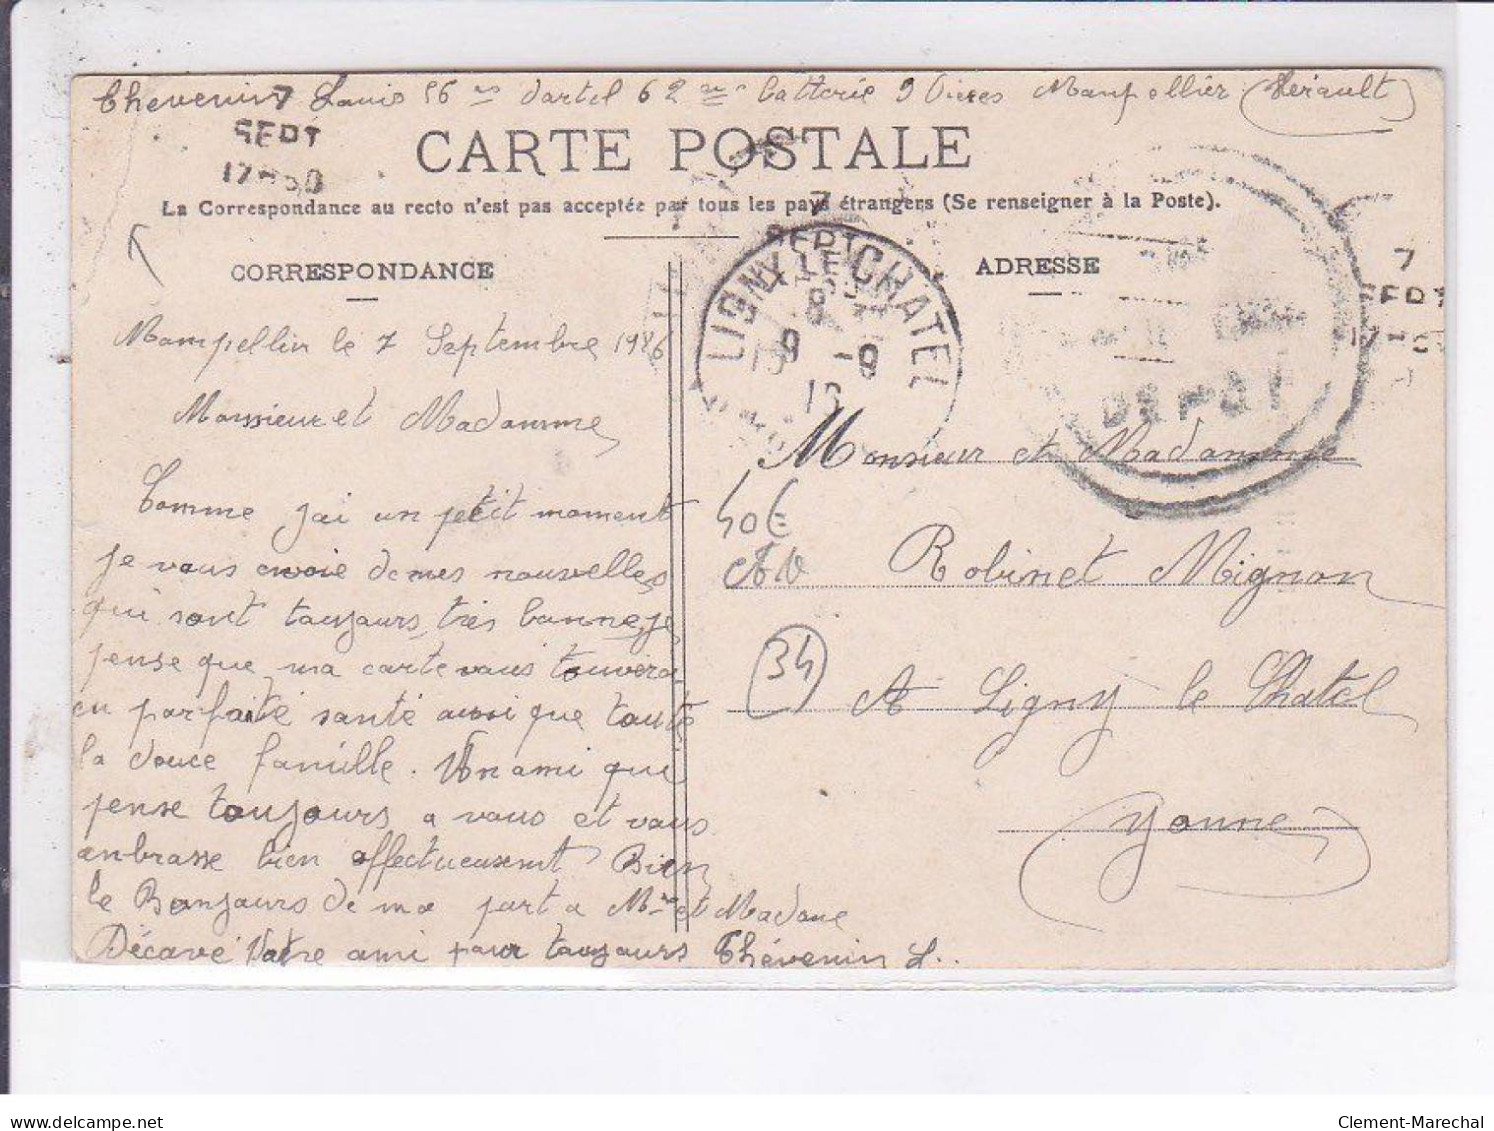 Thevenin Louis 56 me dartel 62 me batterie 9 Pieces Monpellier (Hérault)
7
SEPT
17-30
CARTE POSTALE
La Correspondance au recto n'est pas acceptée par tous les pays étrangers (Se renseigner à la Poste).
CORRESPONDANCE
ADRESSE
7
SEPT
LIGNY LE CHATEL
8
9 -9
16
7
SEPT
DÉPÔT
Monpellier le 7 Septembre 1916
Monsieur et Madamme
Comme jai un petit moment
je vous envoie de mes nouvelles
qui sont toujours très bonne, je
pense que ma carte vous trouvera
en parfaite santé ausi que toute
la douce famille. Un ami qui
pense toujours a vous et vous
anbrasse bien affectueusement Bien
le Bonjours de ma part a Mr et Madame
Décave Votre ami pour toujours Thévenin L..
Monsieur et Madamme
Robinet Mignon
A Ligny le Chatel
Yonne
40€
AV
34
delcampe.net
Clement-Marechal